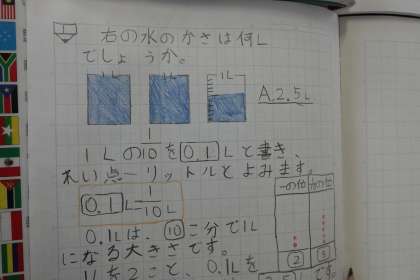 右の水のかさは何L
でしょうか。
1L 1L 1L
A.2.5L
1Lの1/10を0.1Lと書き、
れい点一リットルとよみます。
0.1L=1/10L
一の位
0.1Lは、⑩こ分で1L
になる大きさです。
②
1Lを2こと、0.1Lを